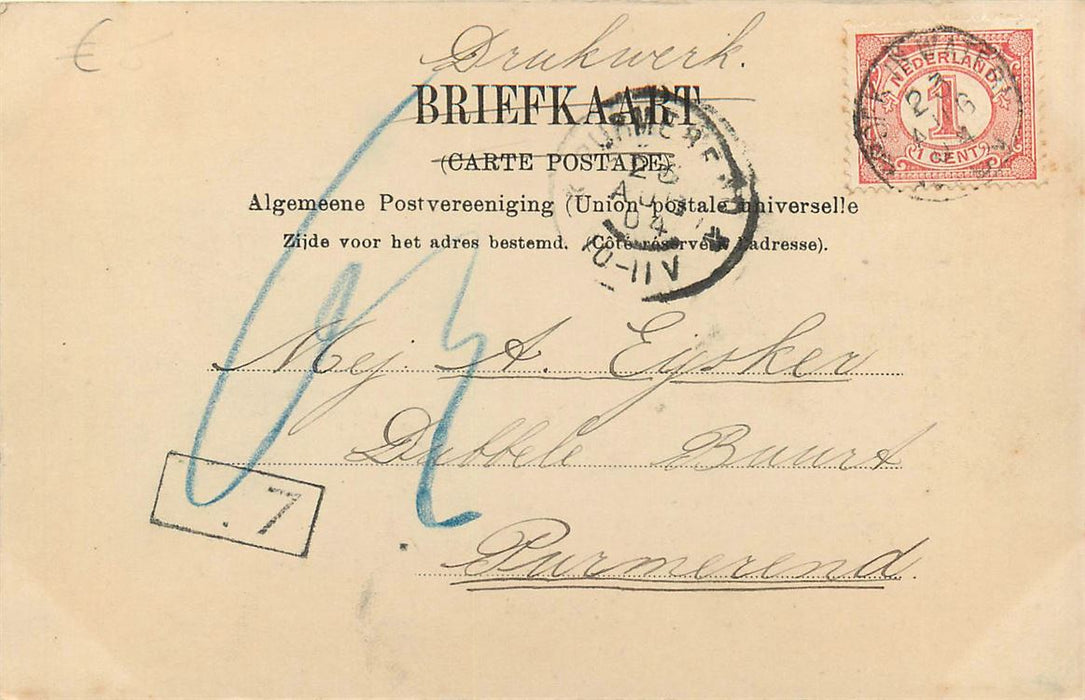 €
Drukwerk.
BRIEFKAART
(CARTE POSTALE)
Algemeene Postvereeniging (Union postale universelle
Zijde voor het adres bestemd. (Côté réservé à l'adresse).
NEDERLAND
1
1 CENT
PURMEREND
AUG
04
10-11V
Mej. A. Eysker
Dubbele Buurt
Purmerend.
. 7